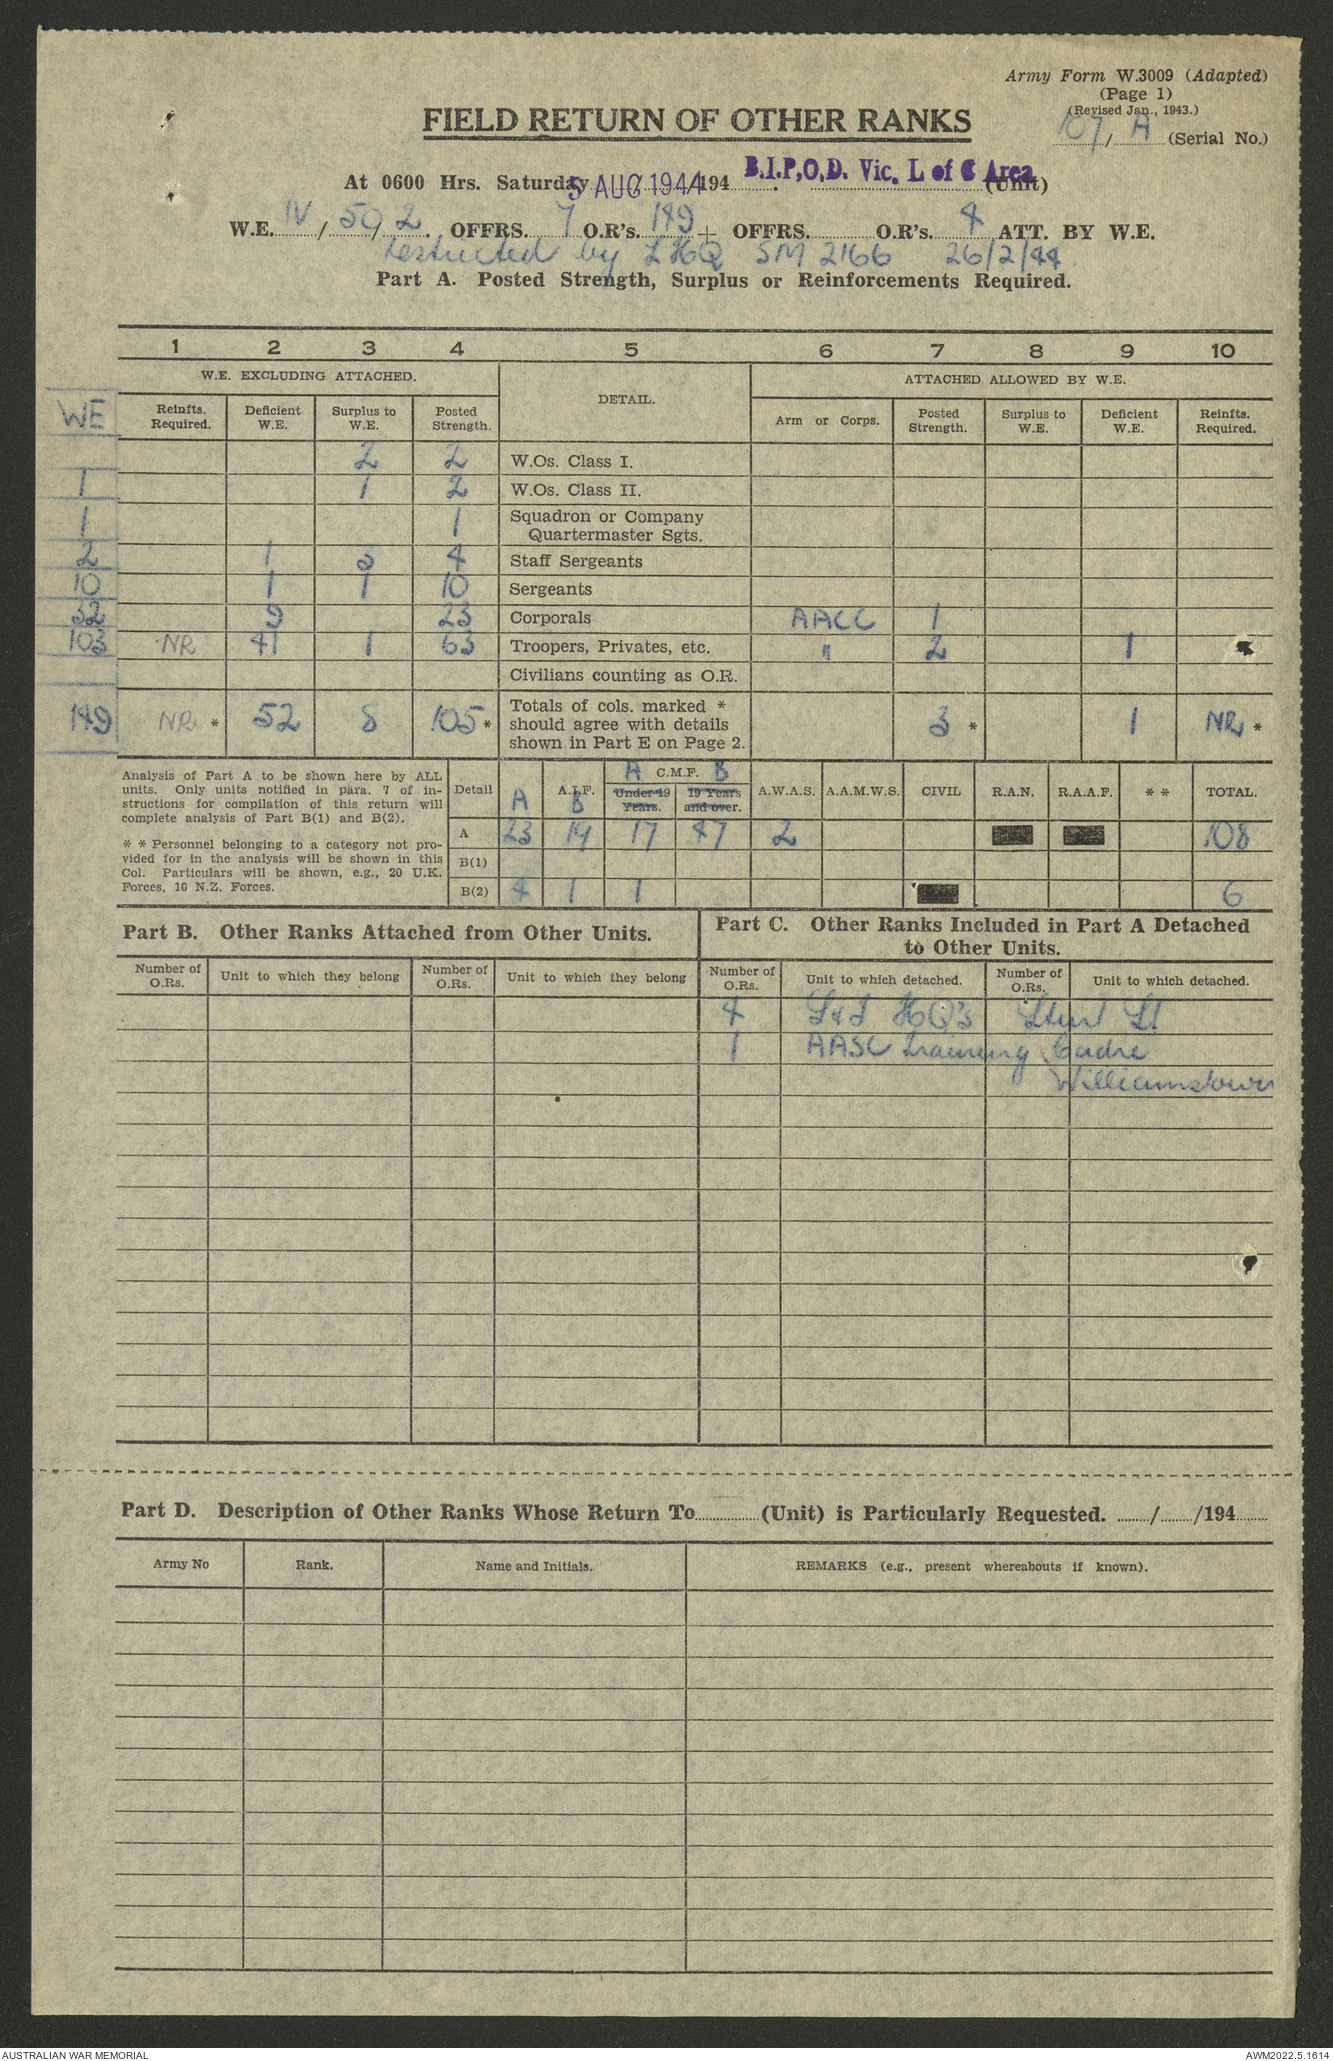 Army Form W.3009 (Adapted)
(Page 1)
(Revised Jan., 1943.)
107/A (Serial No.)
FIELD RETURN OF OTHER RANKS
At 0600 Hrs. Saturday 5 AUG 1944 194 . B.I.P.O.D. Vic. L of C Area (Unit)
W.E. IV / 50 / 2 . OFFRS. 7 O.R's. 149 + OFFRS. O.R's. 4 ATT. BY W.E.
restricted by LHQ SM 2166 26/2/44.
Part A. Posted Strength, Surplus or Reinforcements Required.
1 2 3 4 5 6 7 8 9 10
W.E. EXCLUDING ATTACHED. DETAIL. ATTACHED ALLOWED BY W.E.
WE Reinfts. Required. Deficient W.E. Surplus to W.E. Posted Strength. Arm or Corps. Posted Strength. Surplus to W.E. Deficient W.E. Reinfts. Required.
2 2 W.Os. Class I.
1 1 2 W.Os. Class II.
1 1 Squadron or Company Quartermaster Sgts.
2 1 3 4 Staff Sergeants
10 1 1 10 Sergeants
32 9 23 Corporals AACC 1
103 NR 41 1 63 Troopers, Privates, etc. " 2 1
Civilians counting as O.R.
149 NR * 52 8 105 * Totals of cols. marked * should agree with details shown in Part E on Page 2. 3 * 1 NR *
Analysis of Part A to be shown here by ALL
units. Only units notified in para. 7 of in-
structions for compilation of this return will
complete analysis of Part B(1) and B(2).
* * Personnel belonging to a category not pro-
vided for in the analysis will be shown in this
Col. Particulars will be shown, e.g., 20 U.K.
Forces, 10 N.Z. Forces.
Detail A A.I.F. B A C.M.F. B Under 19 Years. 19 Years and over. A.W.A.S. A.A.M.W.S. CIVIL R.A.N. R.A.A.F. * * TOTAL.
A 23 19 17 47 2 108
B(1)
B(2) 4 1 1 6
Part B. Other Ranks Attached from Other Units.
Part C. Other Ranks Included in Part A Detached
to Other Units.
Number of O.Rs. Unit to which they belong Number of O.Rs. Unit to which they belong Number of O.Rs. Unit to which detached. Number of O.Rs. Unit to which detached.
4 L & J HQ's Sturt St
1 AASC Training Cadre
Williamstown
Part D. Description of Other Ranks Whose Return To (Unit) is Particularly Requested. / /194
Army No Rank. Name and Initials. REMARKS (e.g., present whereabouts if known).
AUSTRALIAN WAR MEMORIAL AWM2022.5.1614